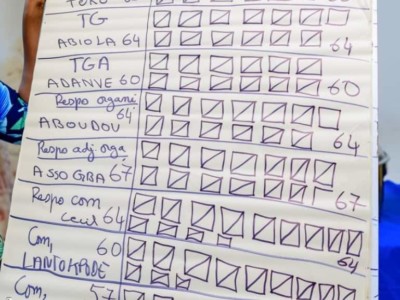 TG
ABIOLA 64 64
TGA
ADANVE 60 60
Respo organi
64
ABOUDOU 64
Respo adj. orga
ASSOGBA 67 67
Respo com
Cecil 64 64
Com,
60
LANTOKPODE
Com, 57